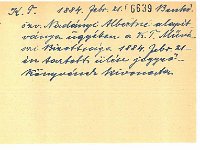 K. T. 1884. febr. 21. 6639 Benkő
özv. Nadányi Albertné alapít
ványa ügyében a K. T. Művé
szi Bizottsága 1884. febr. 21-
én tartott ülése jegyző-
könyvének kivonata.